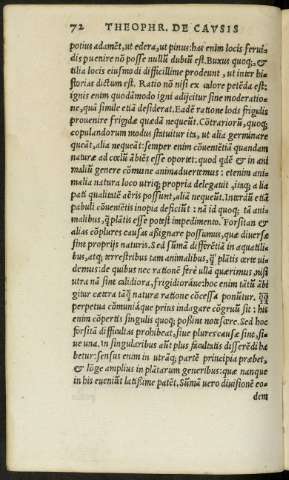 72 THEOPHR. DE CAVSIS
potius adamēt, ut edera, ut pinus: hac enim locis feruidis
puenire nō posse nullū dubiū est. Buxus quoq; &
tilia locis eiusmodi difficillime prodeunt, ut inter historias
dictum est. Ratio nō nisi ex calore petēda est:
ignis enim quodāmodo igni adijcitur sine moderatione,
quā simile etiā desiderat. Eadē ratione locis frigidis
prouenire frigidæ quedā nequeūt. Cōtrariorū, quoq;
copulandorum modus statuitur ita, ut alia germinare
queāt, alia nequeāt: semper enim cōuenientiā quandam
naturæ ad cœlū ābiēt esse oportet: quod qdē & in animaliū
genere cōmune animaduertimus: etenim animalia
natura loco utriq; propria delegauit, inq; alia
pati qualitatē aëris possunt, alia nequeūt. Interdū etiā
pabuli cōueniētis inopia deficiūt: nā id quoq; tā animalibus,
q̃ plātis esse potest impedimento. Forsitan &
alias cōplures causas assignare possumus, quæ diuersæ
sint proprijs naturis. Sed sūma differētia in aquatilibus,
atq; terrestribus tam animalibus, q̃ plātis certe uidemus:
de quibus nec rationē ferè ullā quærimus, nisi
utra nā sint calidiora, frigidiorāue: hoc enim tātū ābigitur
cætera tāq̃ natura ratione cōcessa ponūtur. q̃q̃
perpetua cōmuniāque prius indagare cōgruū sit: his
enim cōpertis singulis quoq; possint notescere. Sed hoc
forsitā difficultas prohibeat, siue plures causæ sint, siue
una. In singularibus aūt plus facultatis differēdi habetur:
sensus enim in utrāq; parte principia præbet,
& lōge amplius in plātarum generibus: quæ nanque
in his eueniūt latissime patēt. Sūma uero diuisionē eodem